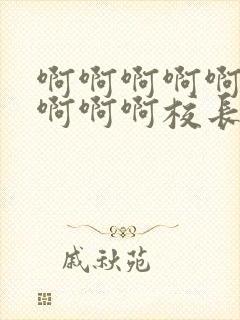 啊啊啊啊啊
啊啊啊校长
戚秋苑